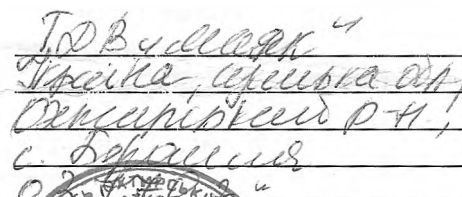 ТДВ „Маяк"
Україна, Сумська обл,
Охтирський р-н,
с. Боромля